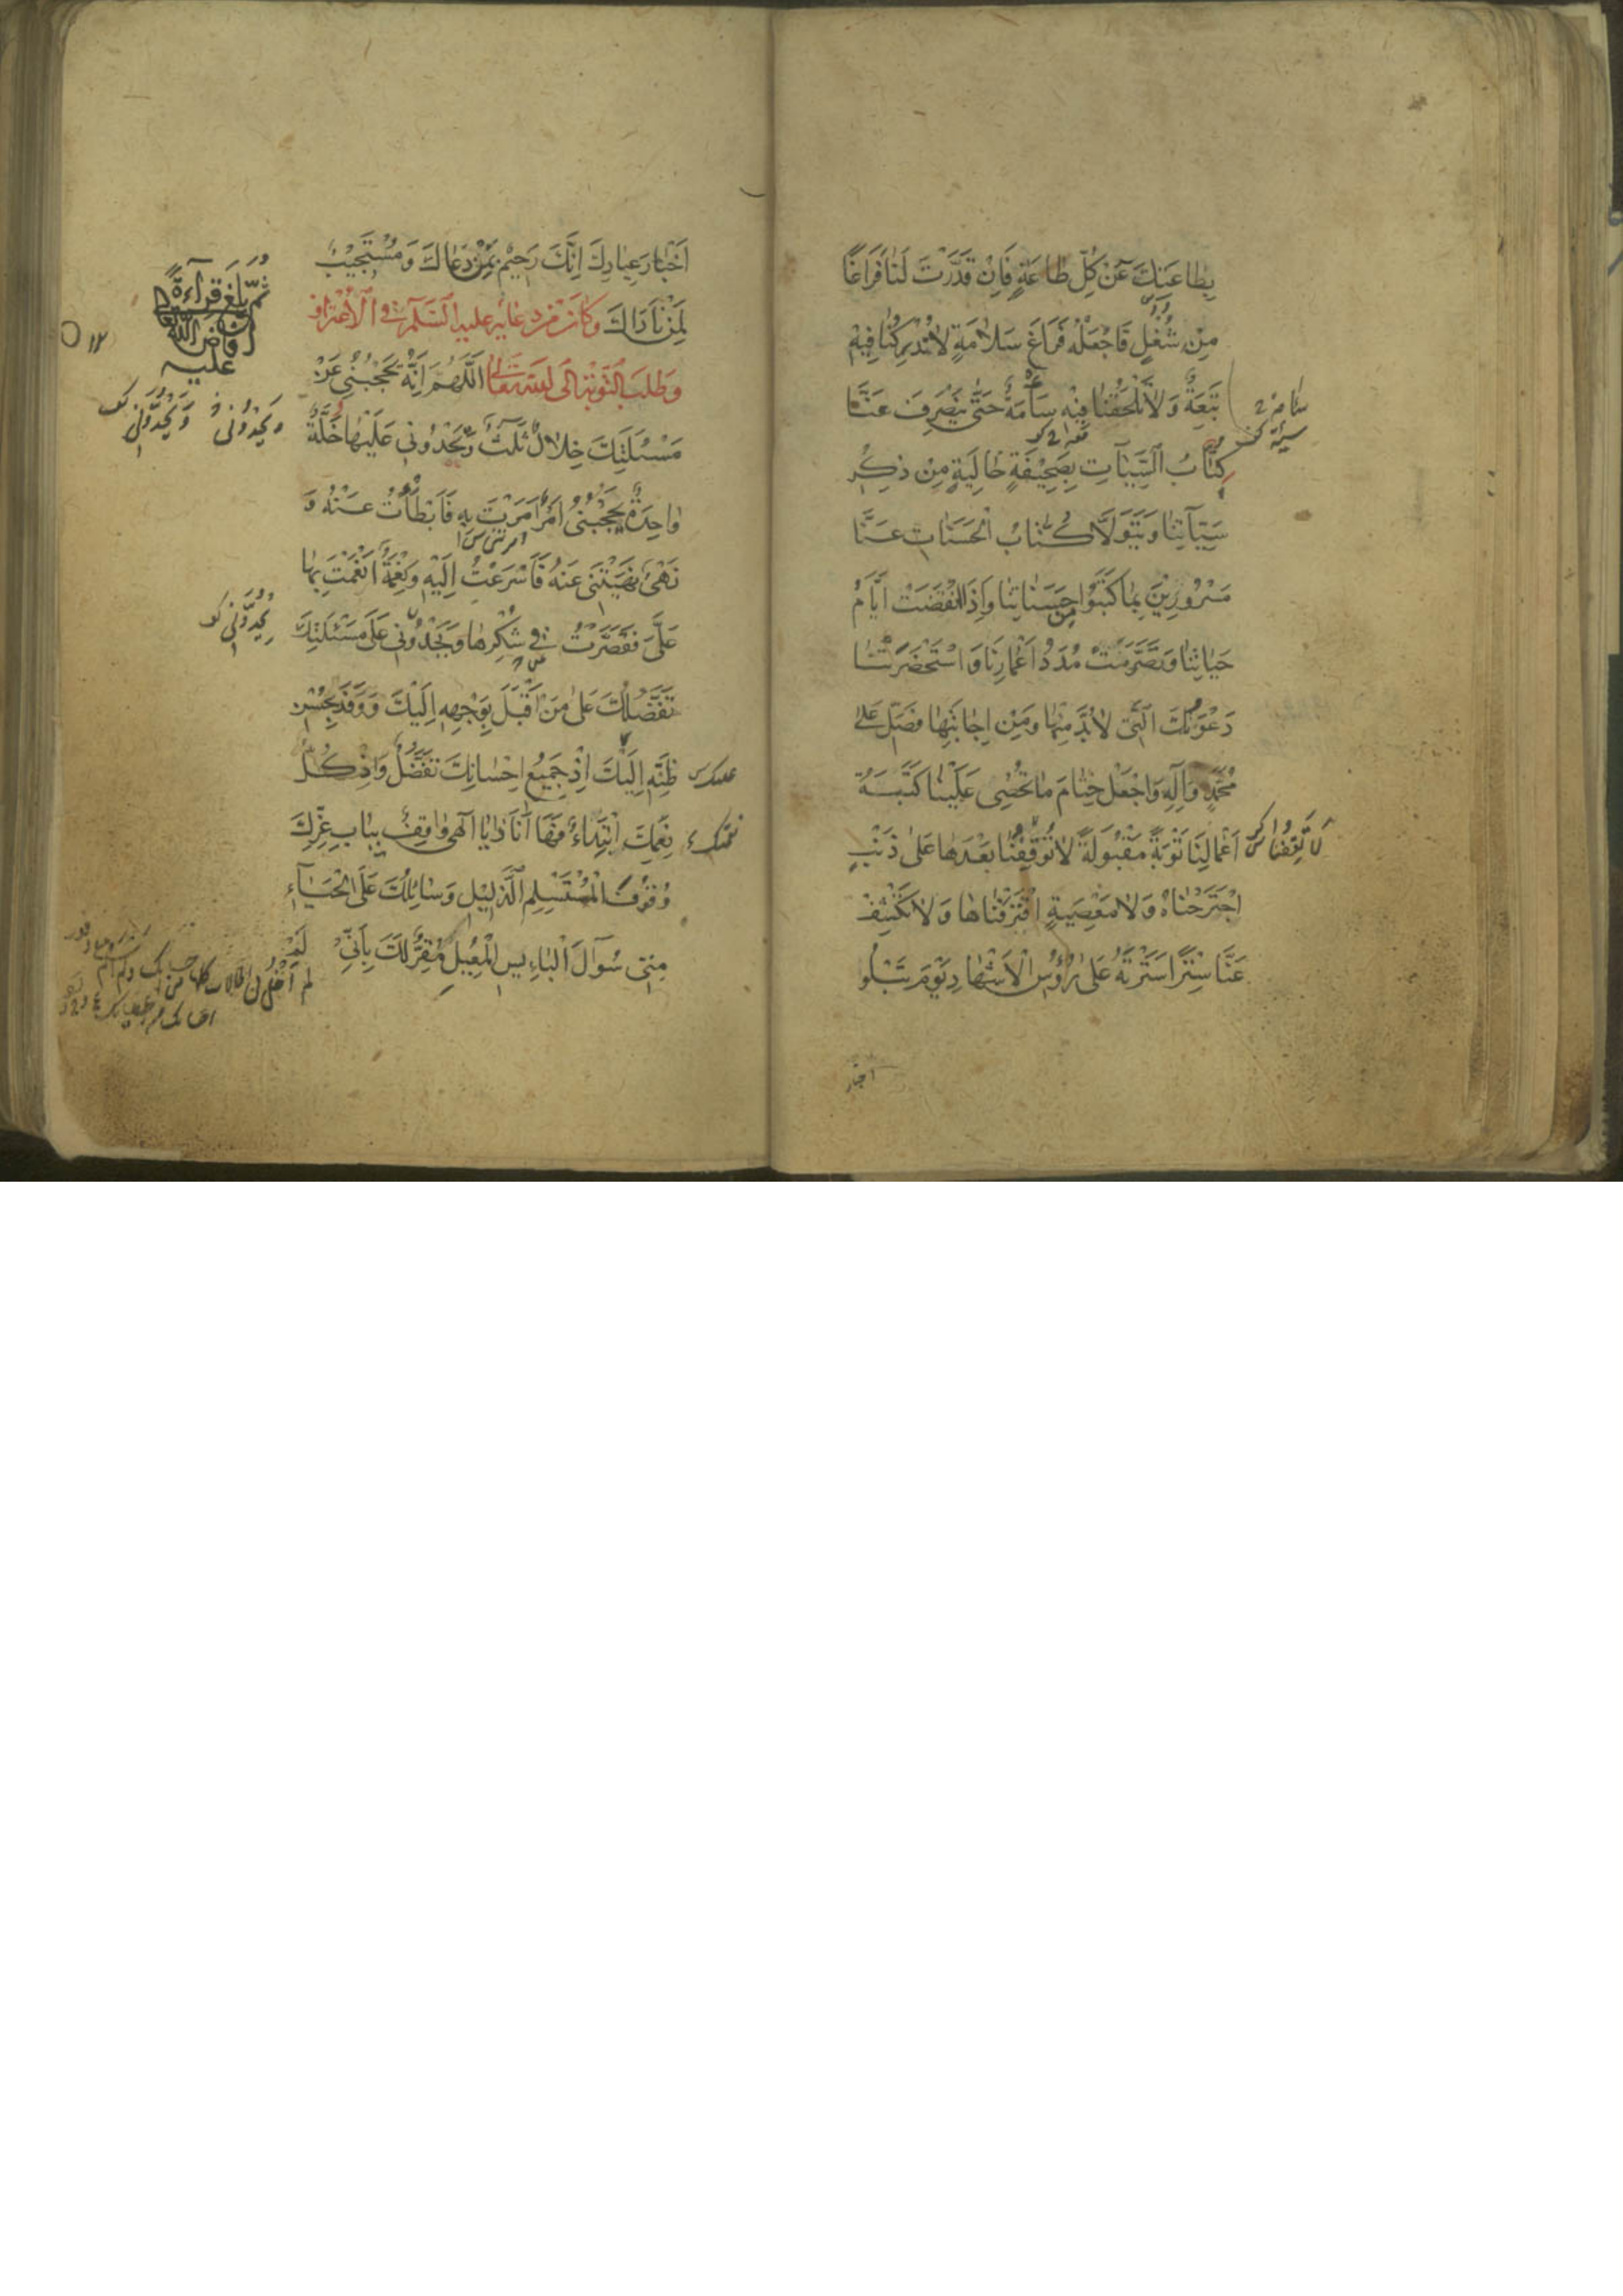 بِطاعَتِكَ عَنْ كُلِّ طاعَةٍ فَاِنْ قَدَّرْتَ لَنا فَراغًا
مِنْ شُغْلٍ فَاجْعَلْهُ فَراغَ سَلامَةٍ لا تُدْرِكُنا فيهِ
تَبِعَةٌ وَلا تَلْحَقُنا فيهِ سَأْمَةٌ حَتّى يَنْصَرِفَ عَنّا
كُتّابُ السَّيِّئاتِ بِصَحيفَةٍ خالِيَةٍ مِنْ ذِكْرِ
سَيِّئاتِنا وَيَتَوَلّى كُتّابُ الْحَسَناتِ عَنّا
مَسْرُورينَ بِما كَتَبُوا مِنْ حَسَناتِنا وَاِذَا انْقَضَتْ اَيّامُ
حَياتِنا وَتَصَرَّمَتْ مُدَدُ اَعْمارِنا وَاسْتَحْضَرَتْنا
دَعْوَتُكَ الَّتي لابُدَّ مِنْها وَمِنْ اِجابَتِها فَصَلِّ عَلى
مُحَمَّدٍ وَآلِهِ وَاجْعَلْ خِتامَ ما تُحْصي عَلَيْنا كَتَبَةُ
اَعْمالِنا تَوْبَةً مَقْبُولَةً لا تُوقِفُنا بَعْدَها عَلى ذَنْبٍ
اجْتَرَحْناهُ وَلا مَعْصِيَةٍ اقْتَرَفْناها وَلا تَكْشِفْ
عَنّا سِتْرًا سَتَرْتَهُ عَلى رُؤُسِ الْاَشْهادِ يَوْمَ تَبْلُو
اخبار
اَخْبارَ عِبادِكَ اِنَّكَ رَحيمٌ بِمَنْ دَعاكَ وَمُسْتَجيبٌ
لِمَنْ ناداكَ وَكانَ مِنْ دُعائِهِ عَلَيْهِ السَّلامُ فِي الْاِعْتِرافِ
وَطَلَبِ التَّوْبَةِ اِلَى اللهِ تَعالى اَللّهُمَّ اِنَّهُ يَحْجُبُني عَنْ
مَسْئَلَتِكَ خِلالٌ ثَلثٌ وَتَحْدُوني عَلَيْها خَلَّةٌ
واحِدَةٌ يَحْجُبُني اَمْرٌ اَمَرْتَ بِهِ فَاَبْطَأْتُ عَنْهُ وَ
نَهْيٌ نَهَيْتَني عَنْهُ فَاَسْرَعْتُ اِلَيْهِ وَنِعْمَةٌ اَنْعَمْتَ بِها
عَلَيَّ فَقَصَّرْتُ في شُكْرِها وَيَحْدُوني عَلى مَسْئَلَتِكَ
تَفَضُّلُكَ عَلى مَنْ اَقْبَلَ بِوَجْهِهِ اِلَيْكَ وَوَفَدَ بِحُسْنِ
ظَنِّهِ اِلَيْكَ اِذْ جَميعُ اِحْسانِكَ تَفَضُّلٌ وَاِذْ كُلُّ
نِعَمِكَ ابْتِداءٌ فَها اَنَا ذا يا اِلهي واقِفٌ بِبابِ عِزِّكَ
وُقُوفَ الْمُسْتَسْلِمِ الذَّليلِ وَسائِلُكَ عَلَى الْحَياءِ
مِنّي سُؤالَ الْبائِسِ الْمُعيلِ مُقِرٌّ لَكَ بِاَنّي
لَمْ
ثُمَّ بَلَغَ قِراءَةً
اَفاضَ اللهُ تَعالى
عَلَيْهِ